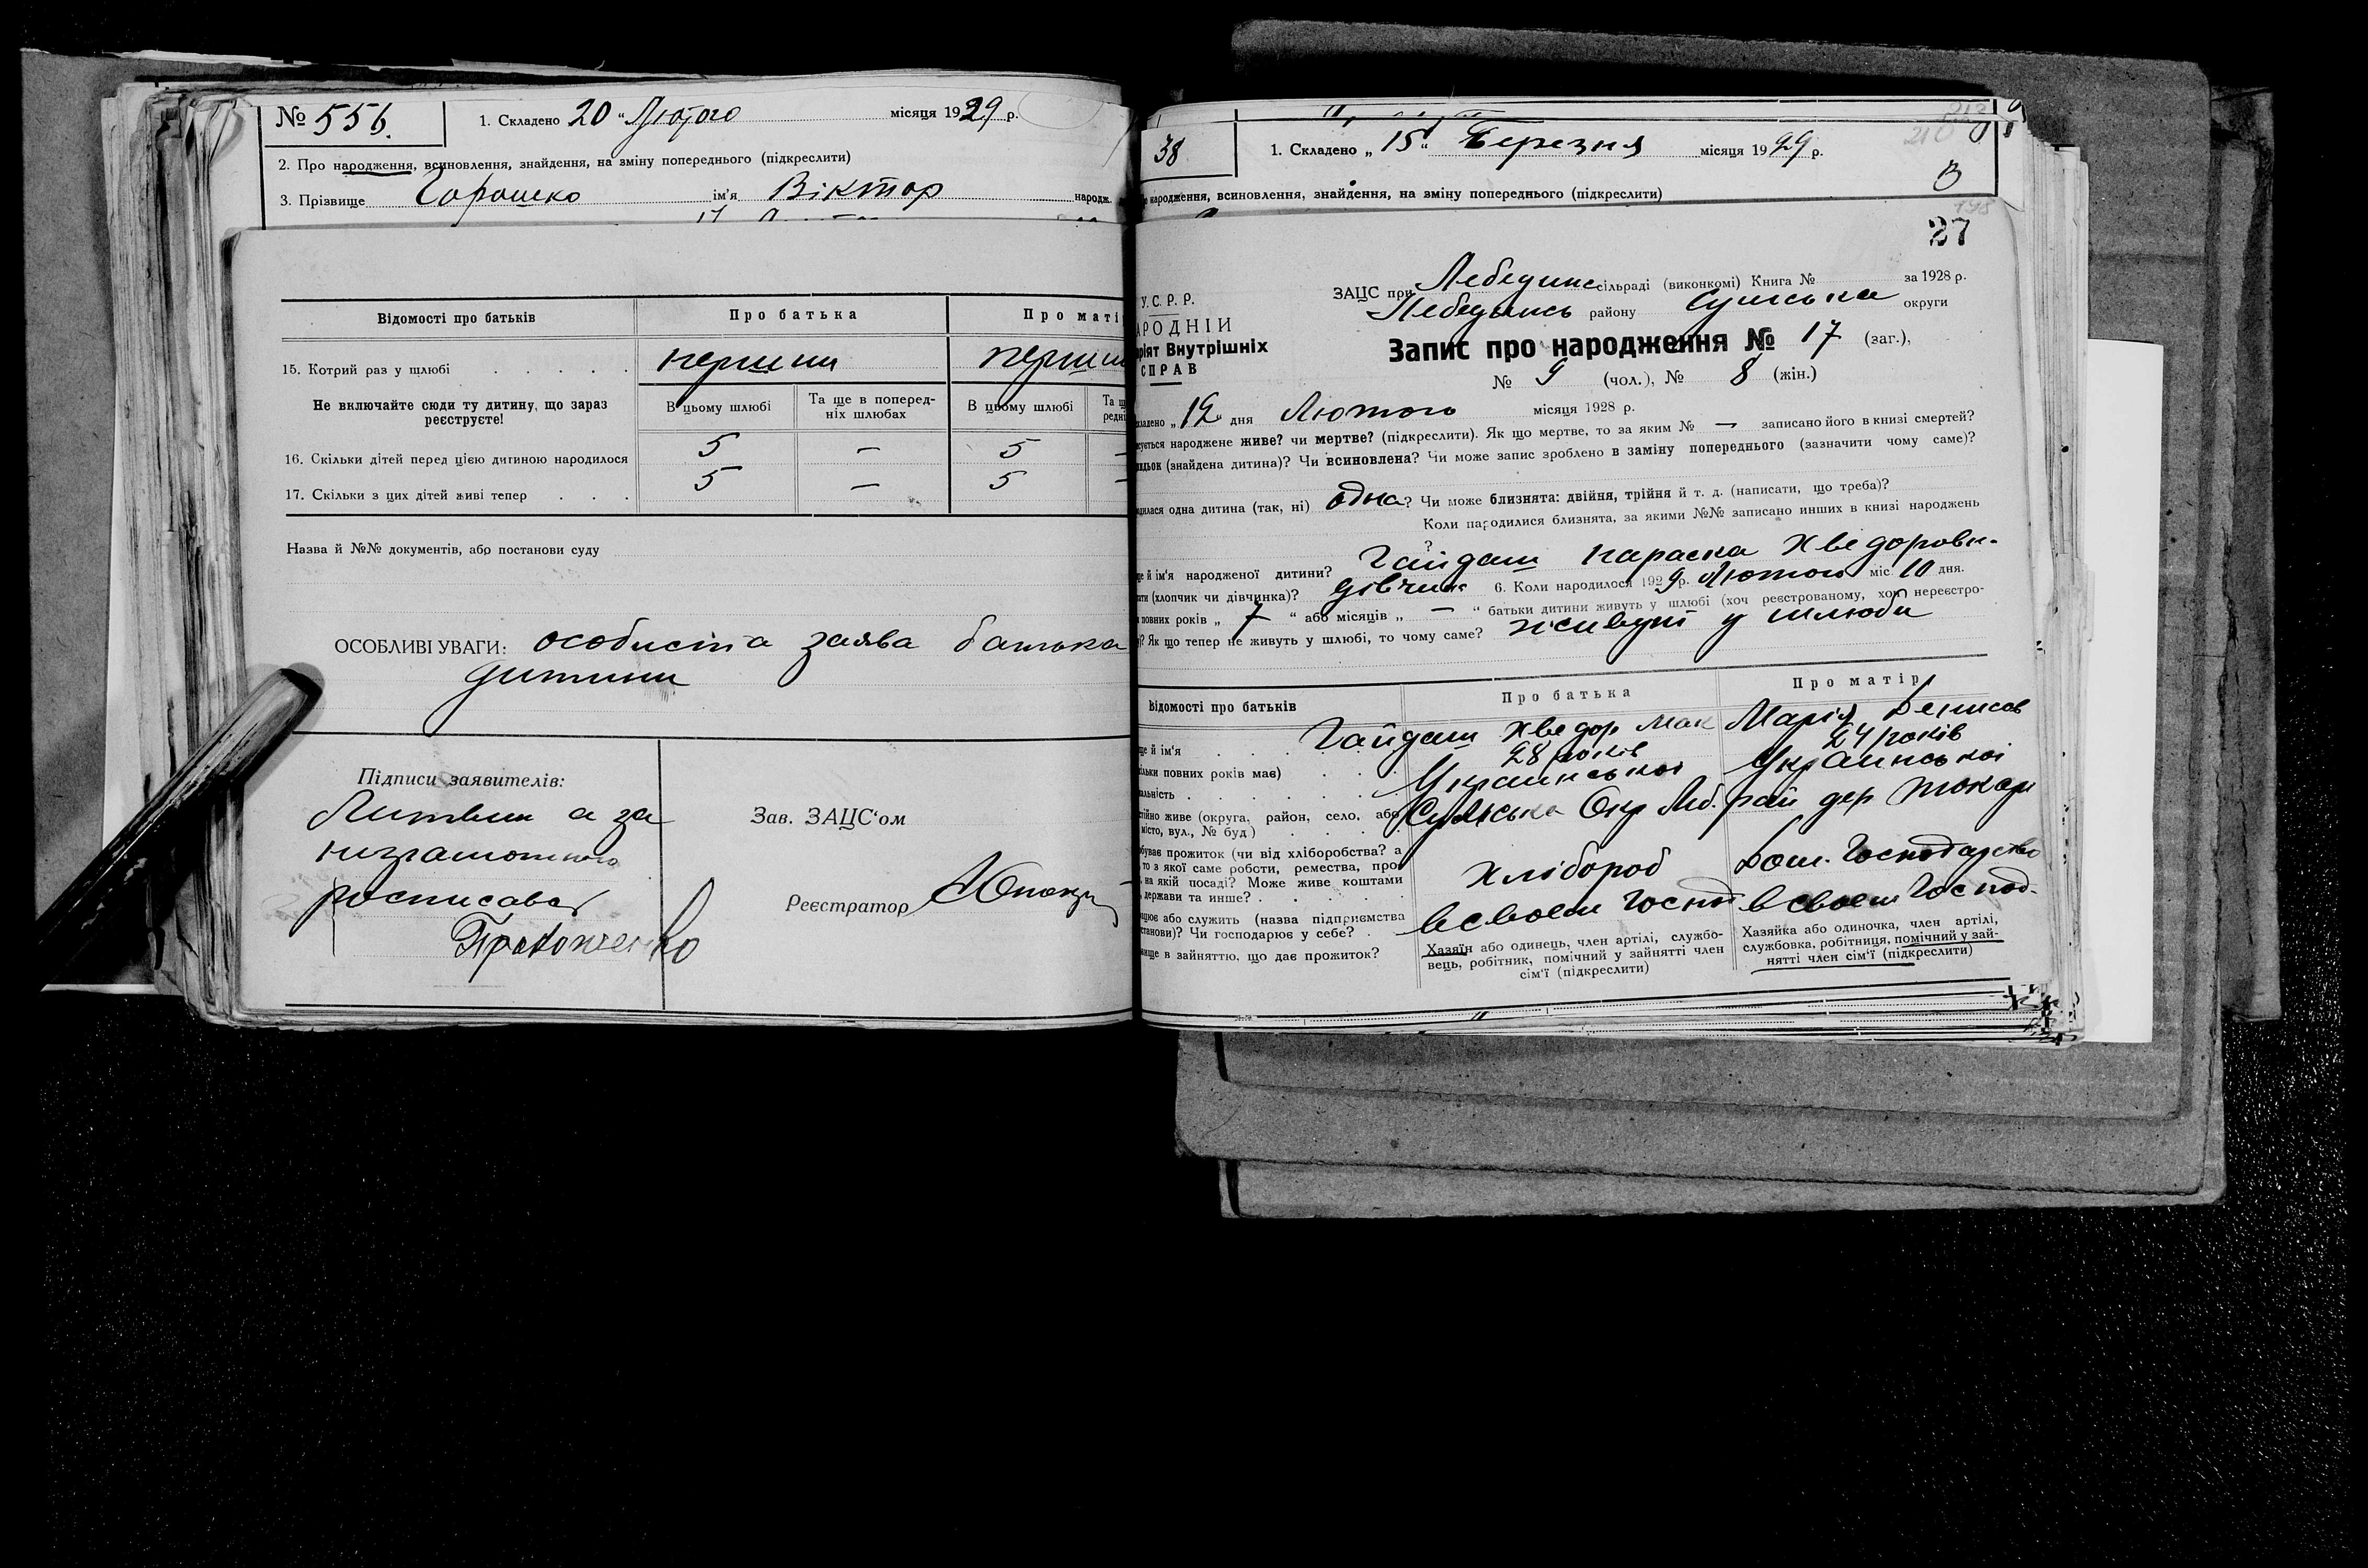 № 556. 1. Складено 20 „Лютого місяця 1929 р.
2. Про народження, всиновлення, знайдення, на зміну попереднього (підкреслити)
3. Прізвище Горошко ім'я Віктор народж.
Відомості про батьків Про батька Про маті
15. Котрий раз у шлюбі . . . . . перший перши
Не включайте сюди ту дитину, що зараз реєструєте!
В цьому шлюбі Та ще в поперед- В цьому шлюбі Та щ
ніх шлюбах редні
16. Скільки дітей перед цією дитиною народилося 5 — 5 —
17. Скільки з цих дітей живі тепер . . . 5 — 5 —
Назва й №№ документів, або постанови суду
ОСОБЛИВІ УВАГИ: особиста заява батька
дитини
Підписи заявителів:
Литвин а за
неграмотного
росписавсь
Зав. ЗАЦС'ом
Реєстратор
38 1. Складено „ 15 " Березня місяця 1929 р.
народження, всиновлення, знайдення, на зміну попереднього (підкреслити)
В
27
У.С.Р.Р.
АРОДНІЙ
ріят Внутрішніх
СПРАВ
ЗАЦС при Лебединс сільраді (виконкомі) Книга № за 1928 р.
Лебединсь району Сумська округи
Запис про народження № 17 (заг.),
№ 9 (чол.), № 8 (жін.)
кладено „12" дня Лютого місяця 1928 р.
сується народжене живе? чи мертве? (підкреслити). Як що мертве, то за яким № — записано його в книзі смертей?
идьок (знайдена дитина)? Чи всиновлена? Чи може запис зроблено в заміну попереднього (зазначити чому саме)?
одилася одна дитина (так, ні) одна? Чи може близнята: двійня, трійня й т. д. (написати, що треба)?
Коли народилися близнята, за якими №№ записано инших в книзі народжень
?
ще й ім'я народженої дитини? Гайдаш Параска Хведоровн.
ати (хлопчик чи дівчинка)? дівчин 6. Коли народилося 1929 р. Лютого міс. 10 дня.
повних років „ 7 " або місяців „ — " батьки дитини живуть у шлюбі (хоч реєстрованому, хоч нереєстро-
)? Як що тепер не живуть у шлюбі, то чому саме? живут у шлюби
Відомості про батьків Про батька Про матір
ще й ім'я . . . Гайдаш Хведор Мак Марія Денисов
ільки повних років має) . . . 28 років 24 років
альність . . . . . . . Украинської Украинської
стійно живе (округа, район, село, або Сумська Окр Леб. рай дер Токари
місто, вул., № буд) . . . .
обуває прожиток (чи від хліборобства? а
то з якої саме роботи, ремества, про-
на якій посаді? Може живе коштами
держави та инше? . . . . . .
Хлібороб Дом. Господарство
ацює або служить (назва підприємства
станови)? Чи господарює у себе? .
в своем Госпо в своем Господ.
вище в зайняттю, що дає прожиток?
Хазяїн або одинець, член артілі, службо-
вець, робітник, помічний у зайнятті член
сім'ї (підкреслити)
Хазяйка або одиночка, член артілі,
службовка, робітниця, помічний у зай-
нятті член сім'ї (підкреслити)